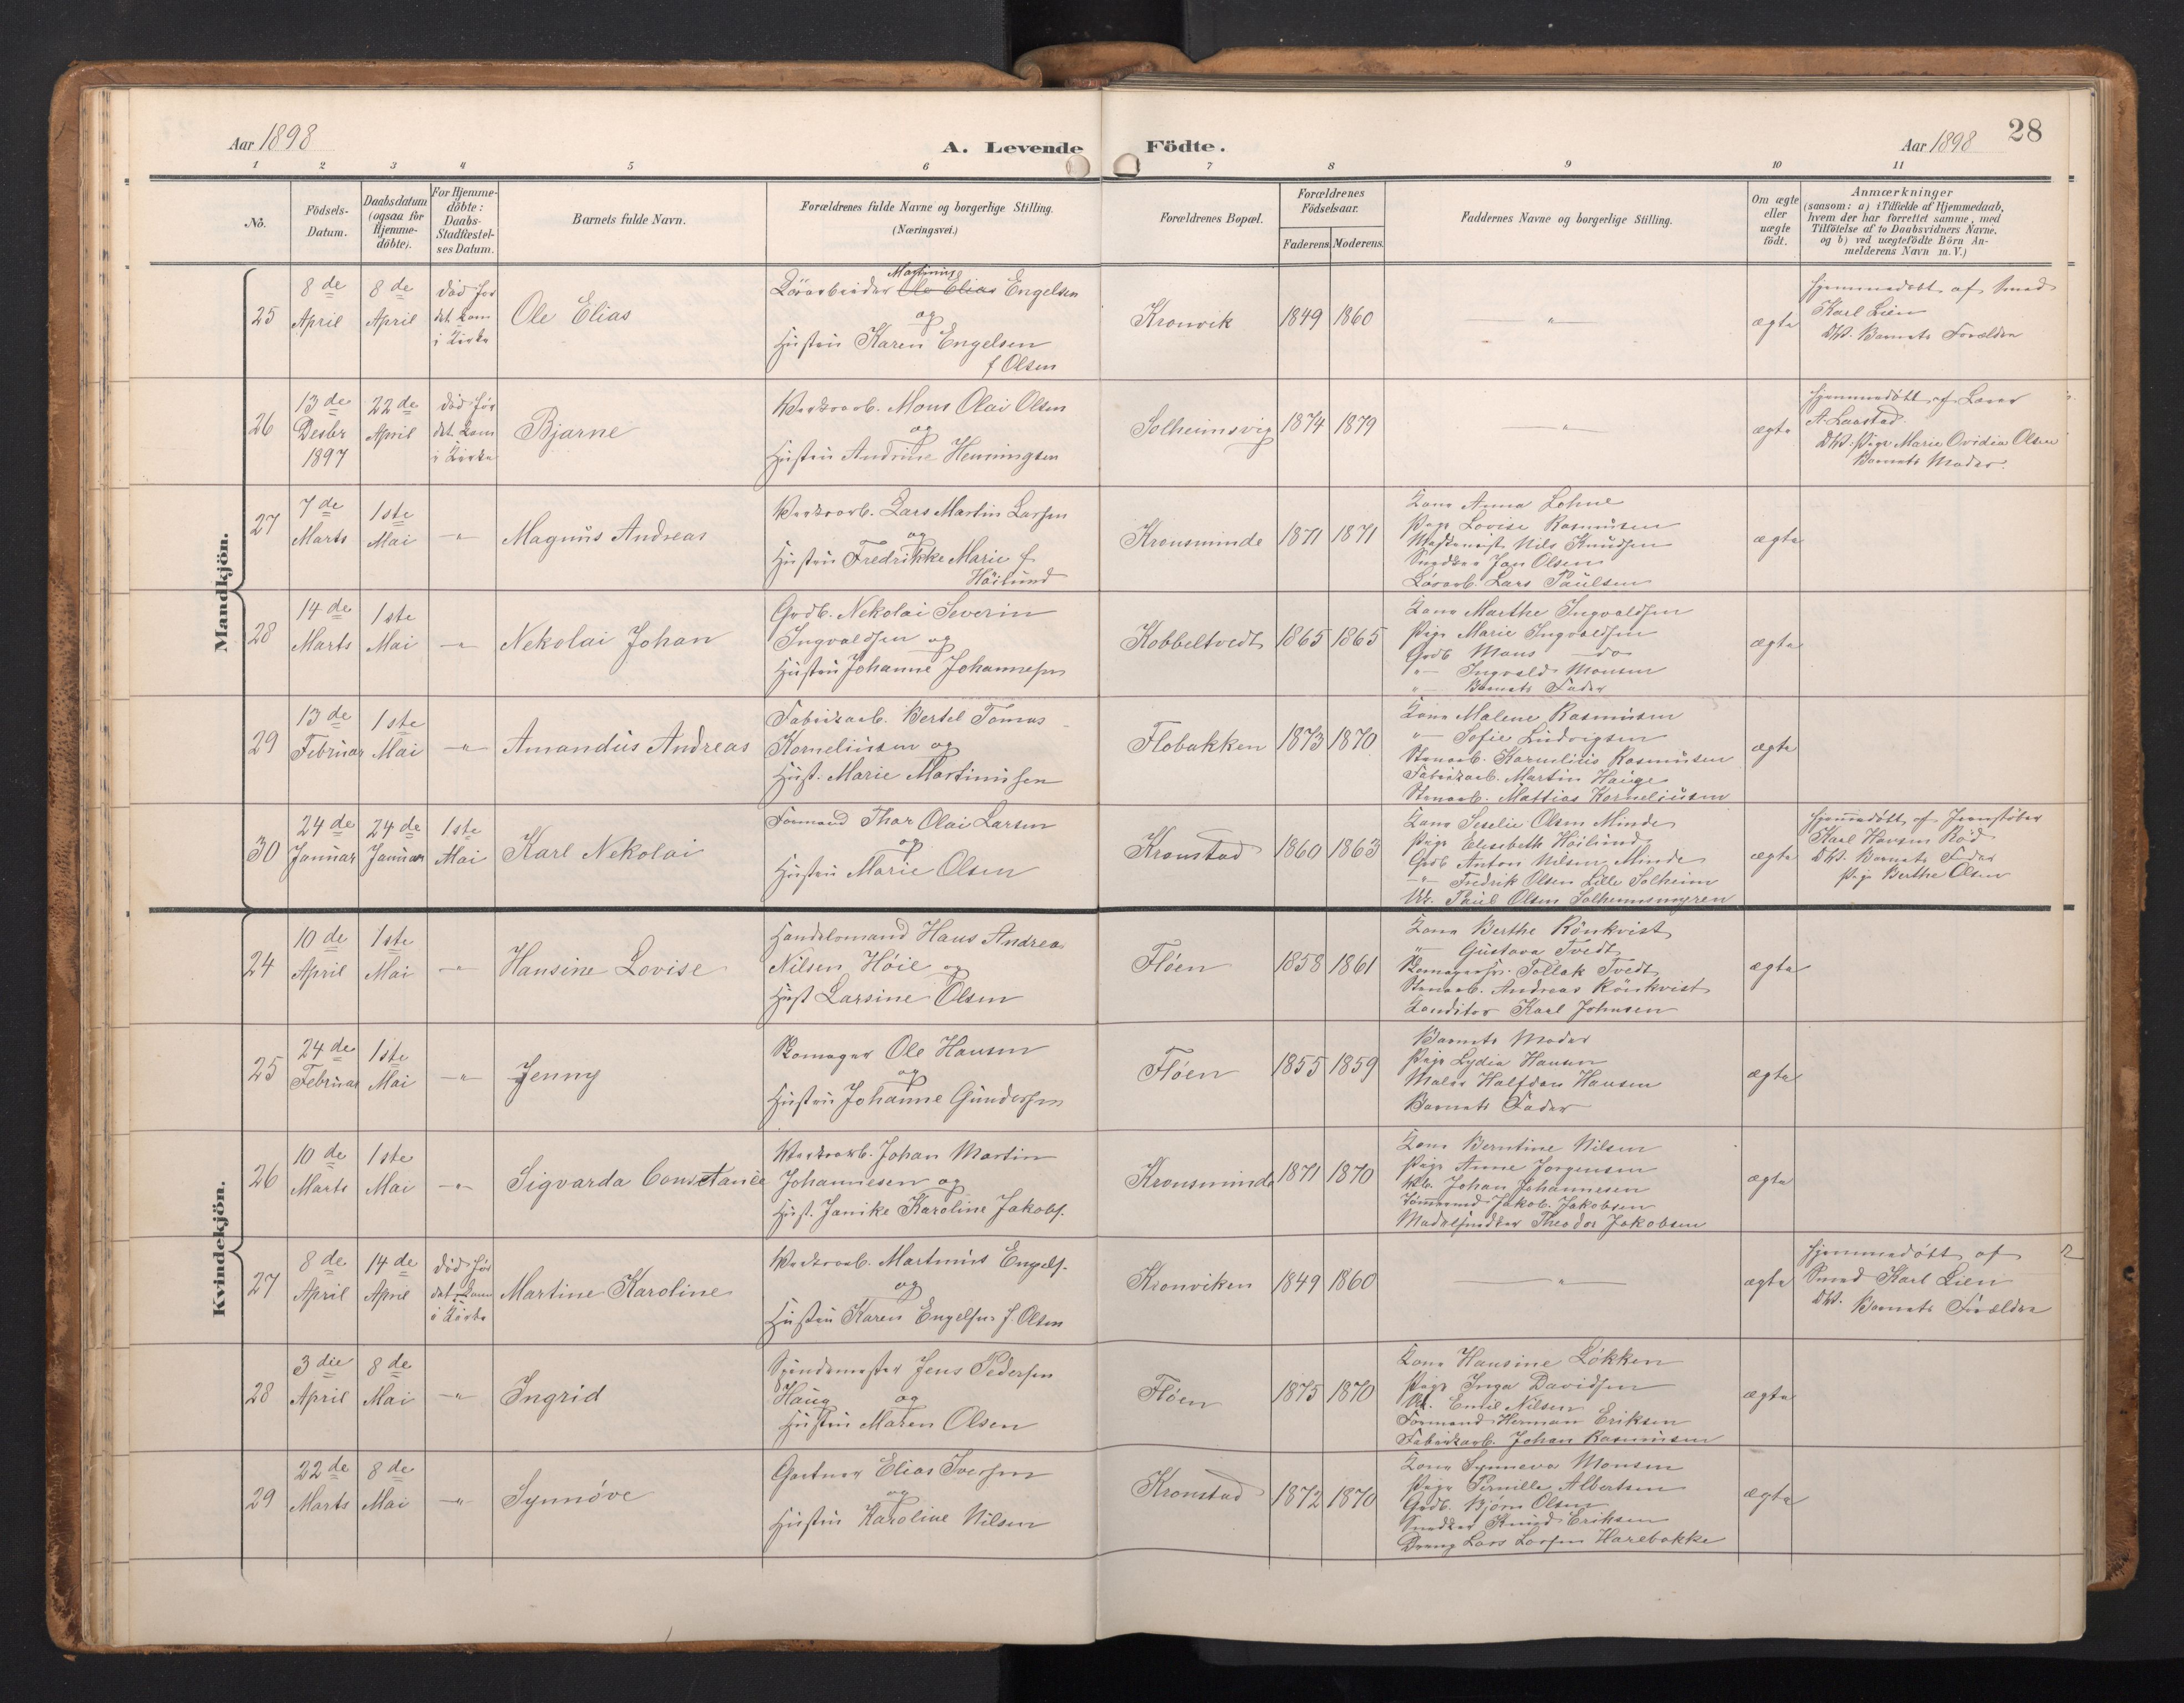 Aar 1898
A. Levende Födte.
Aar 1898
28
1 2 3 4 5 6 7 8 9 10 11
No.
Födsels-
Datum.
Daabsdatum
(ogsaa for
Hjemme-
döbte).
For Hjemme-
döbte:
Daabs-
Stadfæstel-
ses Datum.
Barnets fulde Navn.
Forældrenes fulde Navne og borgerlige Stilling.
(Næringsvei.)
Forældrenes Bopæl.
Forældrenes
Födselsaar.
Faderens. Moderens.
Faddernes Navne og borgerlige Stilling.
Om ægte
eller
uægte
födt.
Anmærkninger
(saasom: a) i Tilfælde af Hjemmedaab,
hvem der har forrettet samme, med
Tilföielse af to Daabsvidners Navne,
og b) ved uægtefödte Börn An-
melderens Navn m. V.)
Mandkjön.
25
8de
April
8de
April
död før
det kom
i Kirke
Ole Elias
Martinus
Ole Elias Engelsen
og
Hustru Karen Engelsen
f Olsen
Kronvik
1849 1860
— " —
ægte
Hjemmedøbt af Smed
Karl Lien
DV. Barnets Forældre
26
13de
Decbr
1897
22de
April
död før
det kom
i Kirke
Bjarne
Værksarb. Mons Olai Olsen
og
Hustru Andrine Henningsen
Solheimsvig
1874 1879
— " —
ægte
Hjemmedøbt af Lærer
A. Laastad
DV: Pige Marie Ovidia Olsen
Barnets Moder.
27
7de
Marts
1ste
Mai
— " —
Magnus Andreas
Værksarb. Lars Martin Larsen
og
Hustru Fredrikke Marie f
Höilund
Kronsminde
1871 1871
Kone Anna Lohne
Pige Lovise Rasmusen
Maskinist Nils Knudsen
Snedker Jan Olsen
Løsarb. Lars Paulsen
ægte
28
14de
Marts
1ste
Mai
— " —
Nekolai Johan
Grdb. Nekolai Severin
Ingvaldsen og
Hustru Johanne Johannesen
Kobbeltvedt
1865 1865
Kone Marthe Ingvaldsen
Pige Marie Ingvaldsen
Grdb Mons — do
" — Ingvald Monsen
" — Barnets Fader
ægte
29
13de
Februar
1ste
Mai
— " —
Amandus Andreas
Fabrikarb. Bertel Tomas
Korneliusen og
Hust. Marie Martinussen
Flobakken
1873 1870
Kone Malene Rasmusen
" — Sofie Ludvigsen
Stenarb. Kornelius Rasmusen
Fabrikarb. Martin Hauge
Stenarb. Mattias Korneliusen
ægte
30
24de
Januar
24de
Januar
1ste
Mai
Karl Nekolai
Formand Thor Olai Larsen
og
Hustru Marie Olsen
Kronstad
1860 1863
Kone Seselie Olsen Minde
Pige Elesibeth Höilund
Grdb Anton Nilsen Minde
— " — Fredrik Olsen Lille Solheim
Paul Olsen Solheimsmyren
ægte
Hjemmedøbt af Jernstøber
Karl Hansen Röd
DV. Barnets Fader
Pige Berthe Olsen
Kvindekjön.
24
10de
April
1ste
Mai
— " —
Hansine Lovise
Handelsmand Hans Andreas
Nilsen Höie og
Hust Larsine Olsen
Flöen
1858 1861
Kone Berthe Rönkvist
" Gustava Tvedt
Tollak Tvedt
Stenarb. Andreas Rönkvist
Konditor Karl Johnsen
ægte
25
24de
Februar
1ste
Mai
— " —
Jenny
Skomager Ole Hansen
og
Hustru Johanne Gundersen
Flöen
1855 1859
Barnets Moder
Pige Lydia Hansen
Maler Halfdan Hansen
Barnets Fader
ægte
26
10de
Marts
1ste
Mai
— " —
Sigvarda Constance
Værksarb. Johan Martin
Johannesen og
Hust. Janike Karoline Jakobs.
Kronsminde
1871 1870
Kone Berntine Nilsen
Pige Anne Jorgensen
Johan Johannesen
Tömmermd Jakob Jakobsen
Modelsnedker Theodor Jakobsen
ægte
27
8de
April
14de
April
död før
det kom
i Kirke
Martine Karoline
Værksarb. Martinus Engels.
og
Hustru Karen Engelsen f. Olsen
Kronviken
1849 1860
— " —
ægte
Hjemmedøbt af
Smed Karl Lien
DV. Barnets Forældre
28
3die
April
8de
Mai
— " —
Ingrid
Spindemester Jens Pedersen
Haug og
Hustru Maren Olsen
Flöen
1875 1870
Kone Hansine Lökken
Pige Inga Davidsen
Emil Nilsen
Formand Herman Eriksen
Fabrikarb. Johan Rasmusen
ægte
29
22de
Marts
8de
Mai
— " —
Synnöve
Gartner Elias Iversen
og
Hustru Karoline Nilsen
Kronstad
1872 1870
Kone Synneva Monsen
Pige Pernille Albertsen
Grdb. Bjørn Olsen
Snedker Knud Eriksen
Dreng Lars Larsen Harebakke
ægte